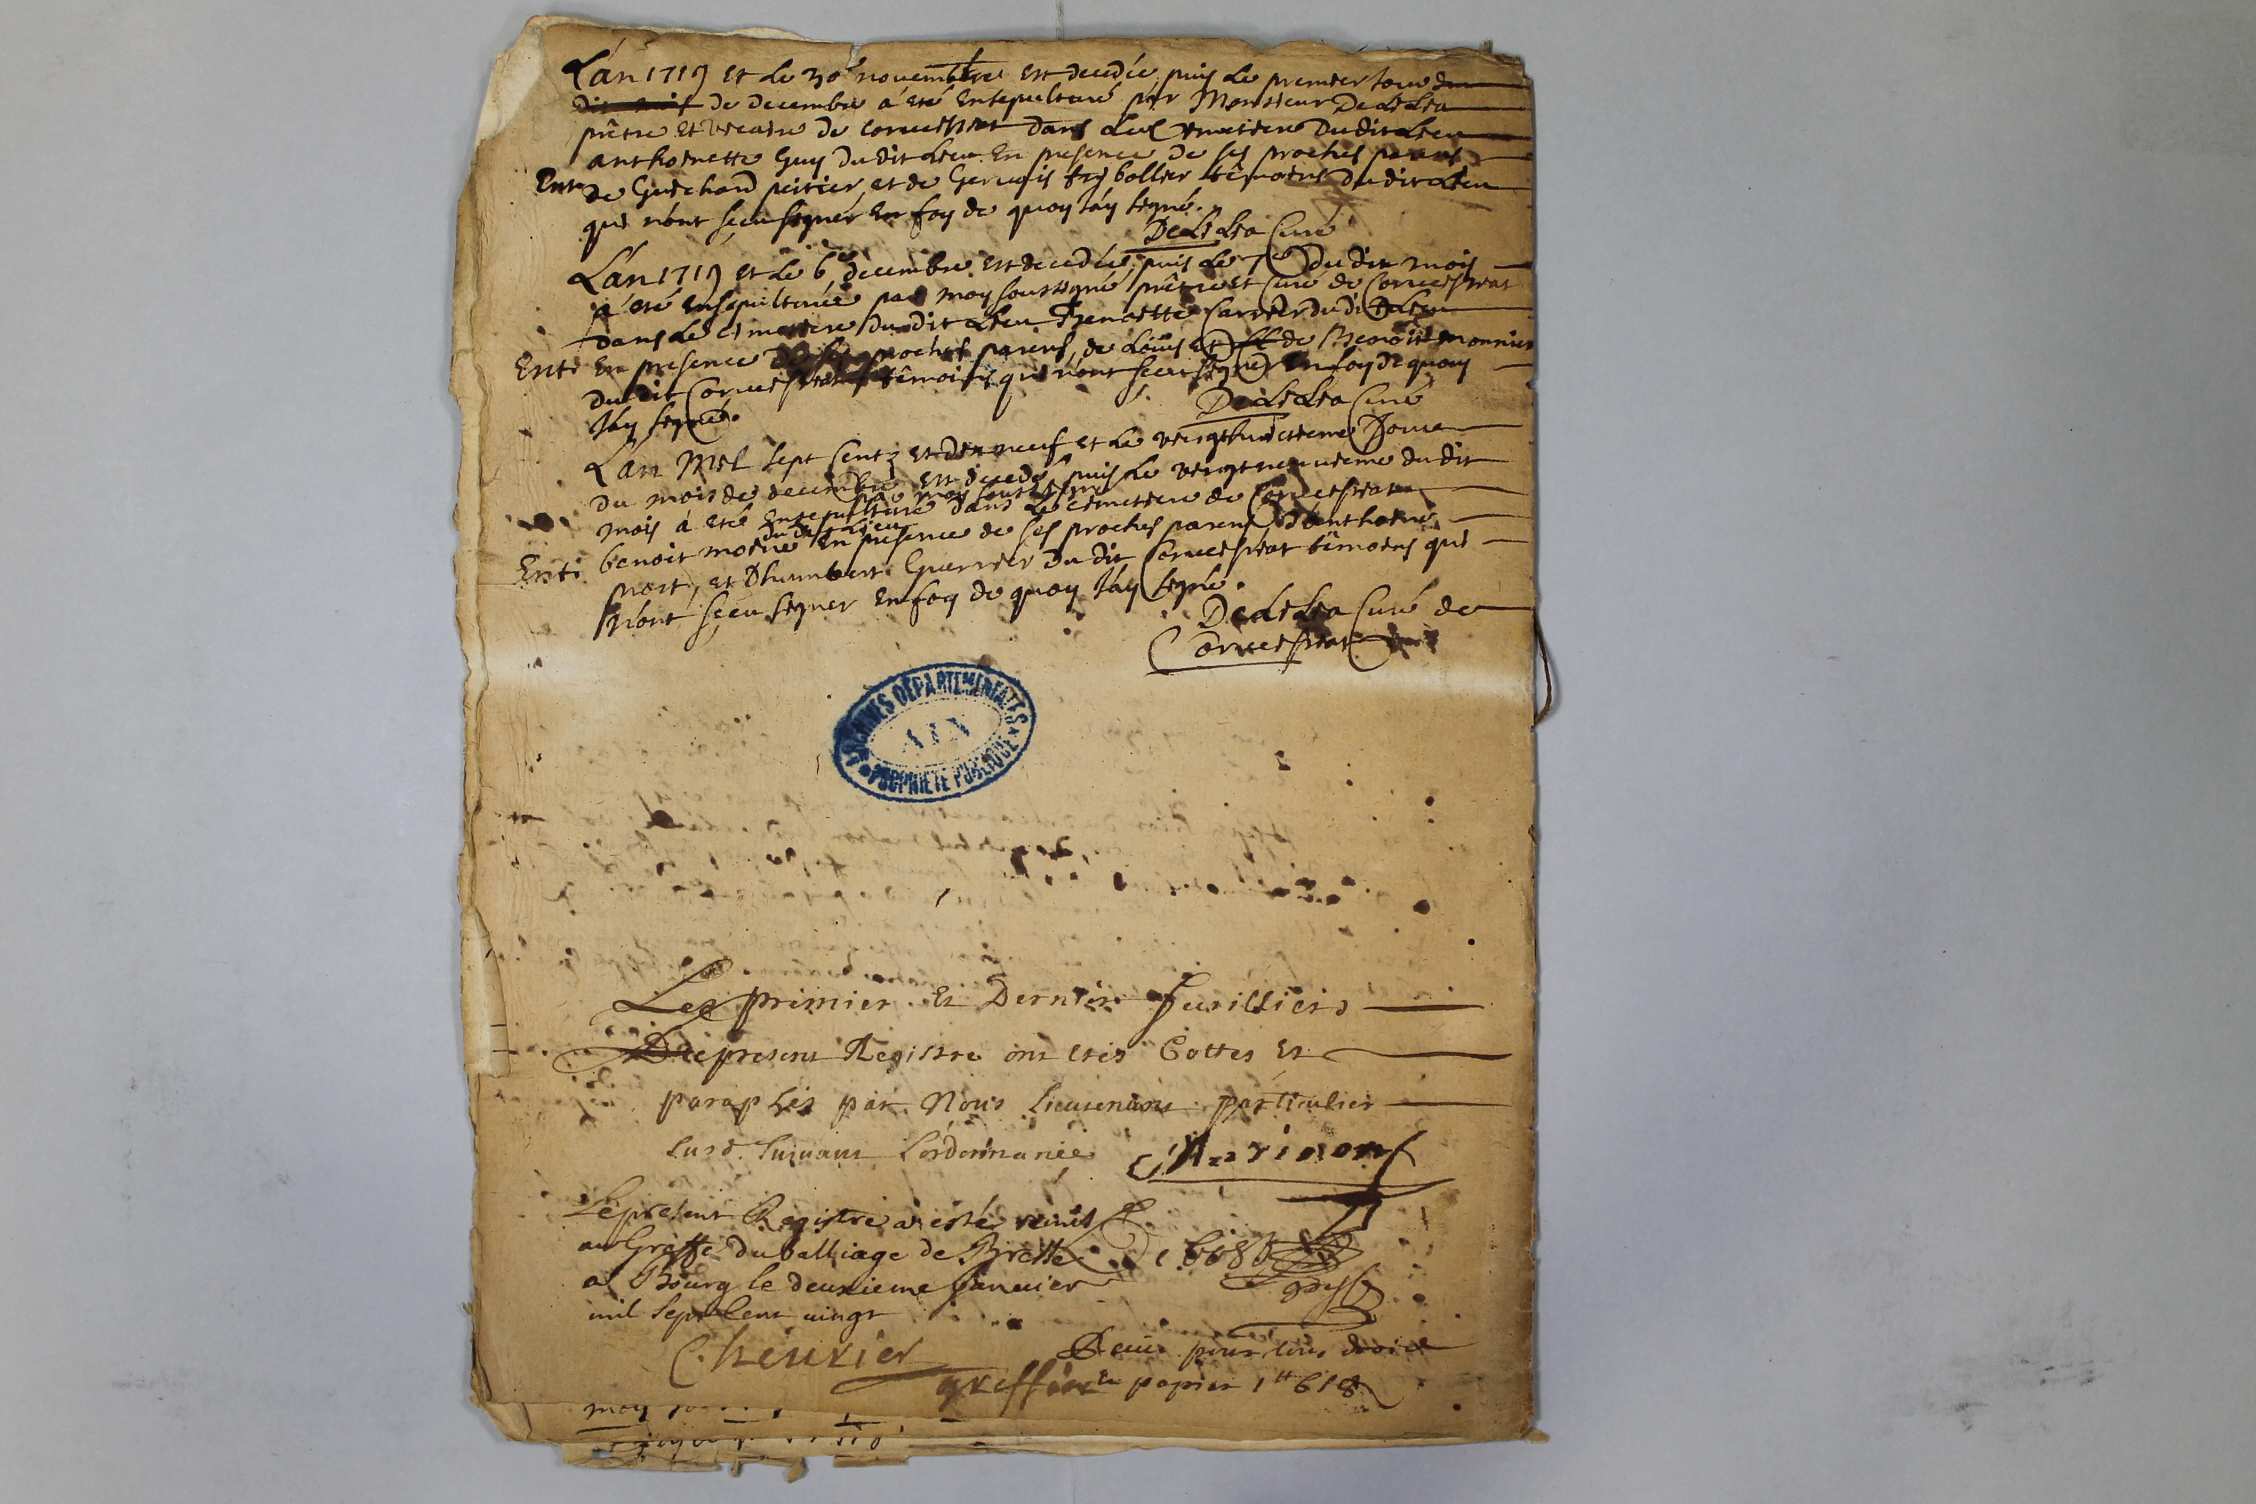 L'an 1719 et le 30e novembre est decedée puis le premier Jour du
dit mois de decembre a été ensepulturé par Monsieur Delilia
prêtre et vicaire de Corveissiat dans le cimetiere du dit Lieu
anthoinette Guy du dit Lieu En presence de ses proches parens
Ent. de Guichard peitier et de Gervais bollier têmoins du dit Lieu
qui n'ont sçeu signer En foy de quoy J'ay signé.
Delilia Curé
L'an 1719 et le 6e decembre est decedée puis le 7e du dit mois
a été ensepulturée par moy soussigné prêtre et Curé de Corveissiat
dans le cimetiere du dit Lieu Benoitte Carrier du dit Lieu
Ent. En presence de ses proches parens, de Louis et de Benoit monnier
du dit Corveissiat têmoins qui n'ont sçeu signer En foy de quoy
J'ay signé.
Delilia Curé
L'an Mil sept Centz et dix neuf et le vingthuictieme Jour
du mois de decembre est decedé puis le vingt neuvieme du dit
par moy soussigné
mois à eté Ensepulturé dans le cimetiere de Corveissiat
du dit Lieu
Ent. benoit moine En presence de ses proches parens d'anthoine
et D'humbert Guerrier du dit Corveissiat têmoins qui
n'ont sçeu signer En foy de quoy J'ay signé.
Delilia Curé de
Corveissiat
ARCHIVES DÉPARTEMENTALES
AIN
PROPRIÉTÉ PUBLIQUE
Les primier Et Dernier Fueilliers
Du present Registre ont etés Cottés Et
paraphés par Nous Lieutenant particulier
susd. suivant L'ordonnance
Le present Registre a esté remis
au Greffe du balliage de Bresse
a Bourg le deuxieme Janvier
mil sept Cent vingt
Chevrier
Receu pour tous droict
greffier En papier 1 tt 6 s 8